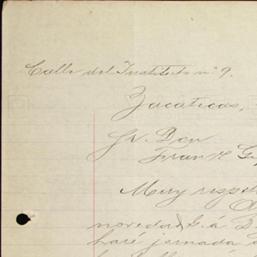 Calle del Instituto nº 9.
Zacatecas,
Sr. Don
Fran
Muy respe
novedad á
haré jornada